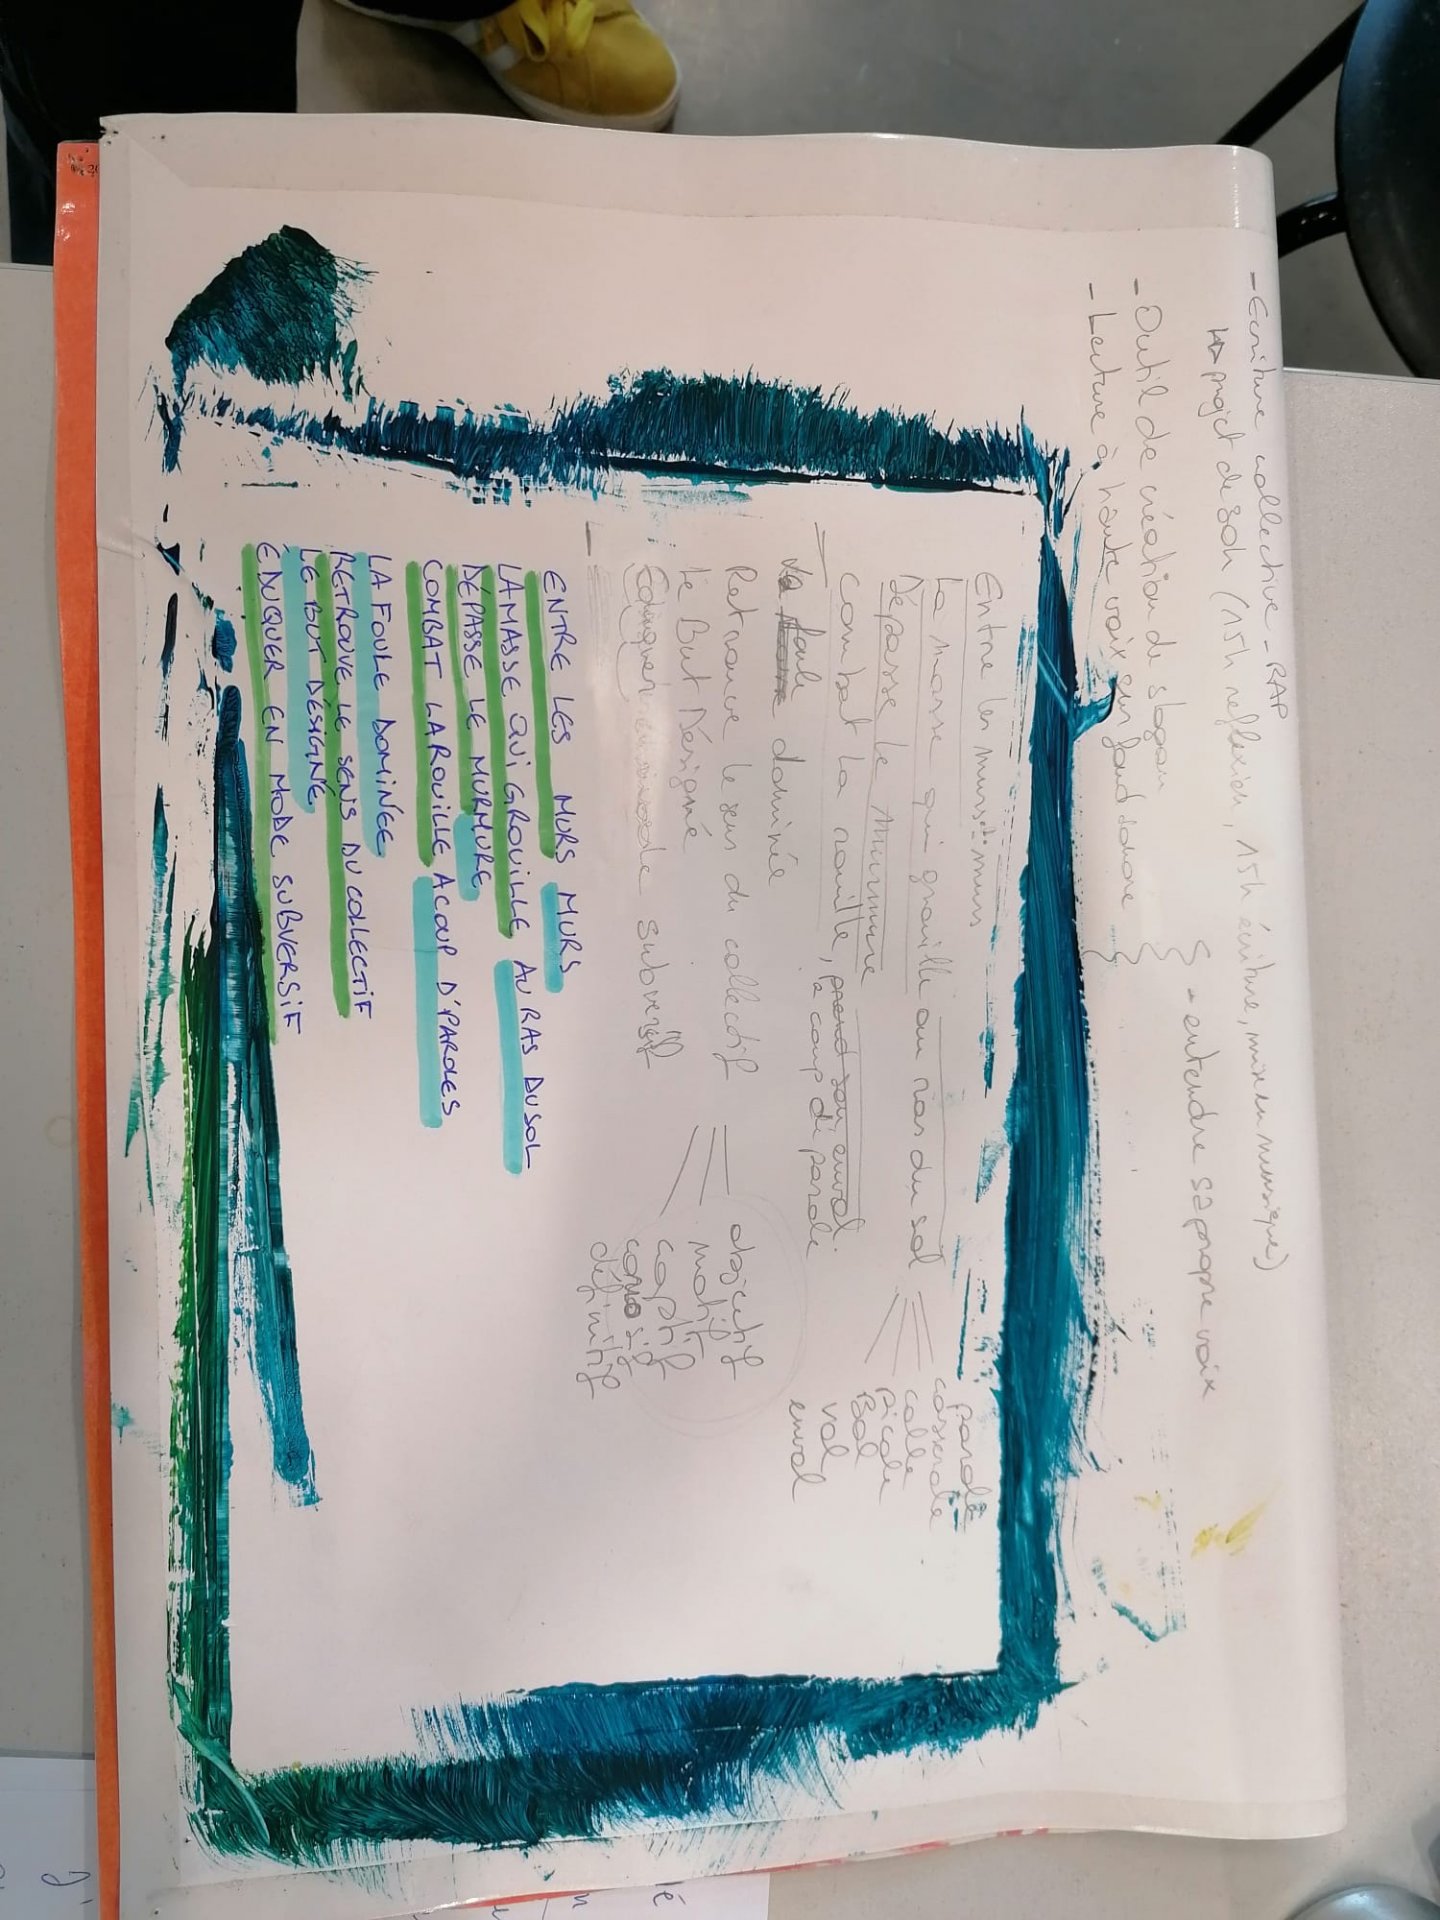 - Ecriture collective - RAP
↳ projet de son (15h réflexion, 15h écriture, mise en musique)
- Outil de création de slogan
- Lecture à haute voix sur fond sonore
- entendre sa propre voix
Entre les murs murs
La masse qui grouille au ras du sol
Dépasse le murmure
Combat la rouille, prend son envol.
à coup de parole
la foule dominée
Retrouve le sens du collectif
Le But Désigné
Eduquer en mode subversif
parole
casserole
colle
picole
Bol
vol
envol
objectif
motif
captif
définitif
ENTRE LES MURS MURS
LA MASSE QUI GROUILLE AU RAS DU SOL
DÉPASSE LE MURMURE
COMBAT LA ROUILLE A COUP D'PAROLES
LA FOULE DOMINÉE
RETROUVE LE SENS DU COLECTIF
LE BUT DÉSIGNÉ
EDUQUER EN MODE SUBVERSIF